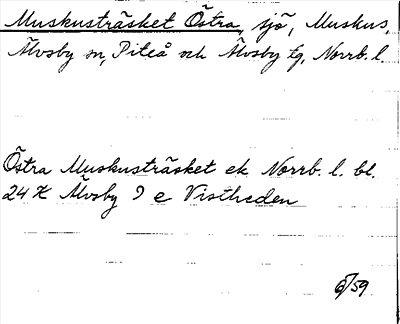 Muskusträsket Östra, sjö, Muskus,
Älvsby sn, Piteå och Älvsby tg, Norrb. l.
Östra Muskusträsket ek Norrb. l. bl.
24 K Älvsby 9 e Vistheden
6/59